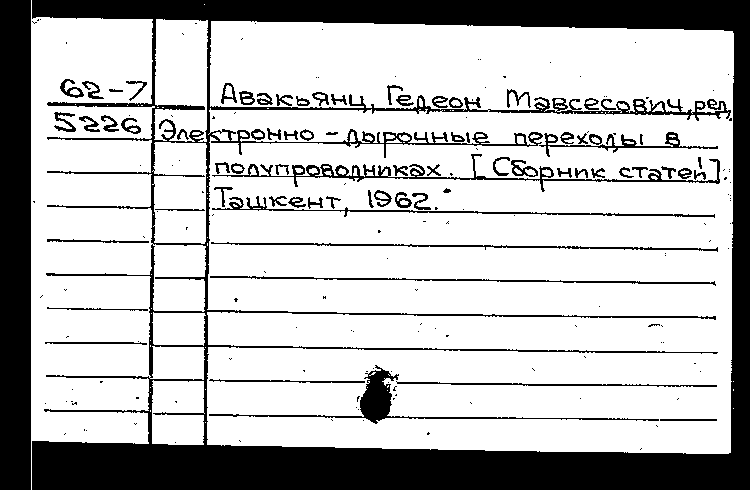 62-7 Авакьянц, Гедеон Мавсесович, ред.
5226 Электронно-дырочные переходы в
полупроводниках. [Сборник статей].
Ташкент, 1962.